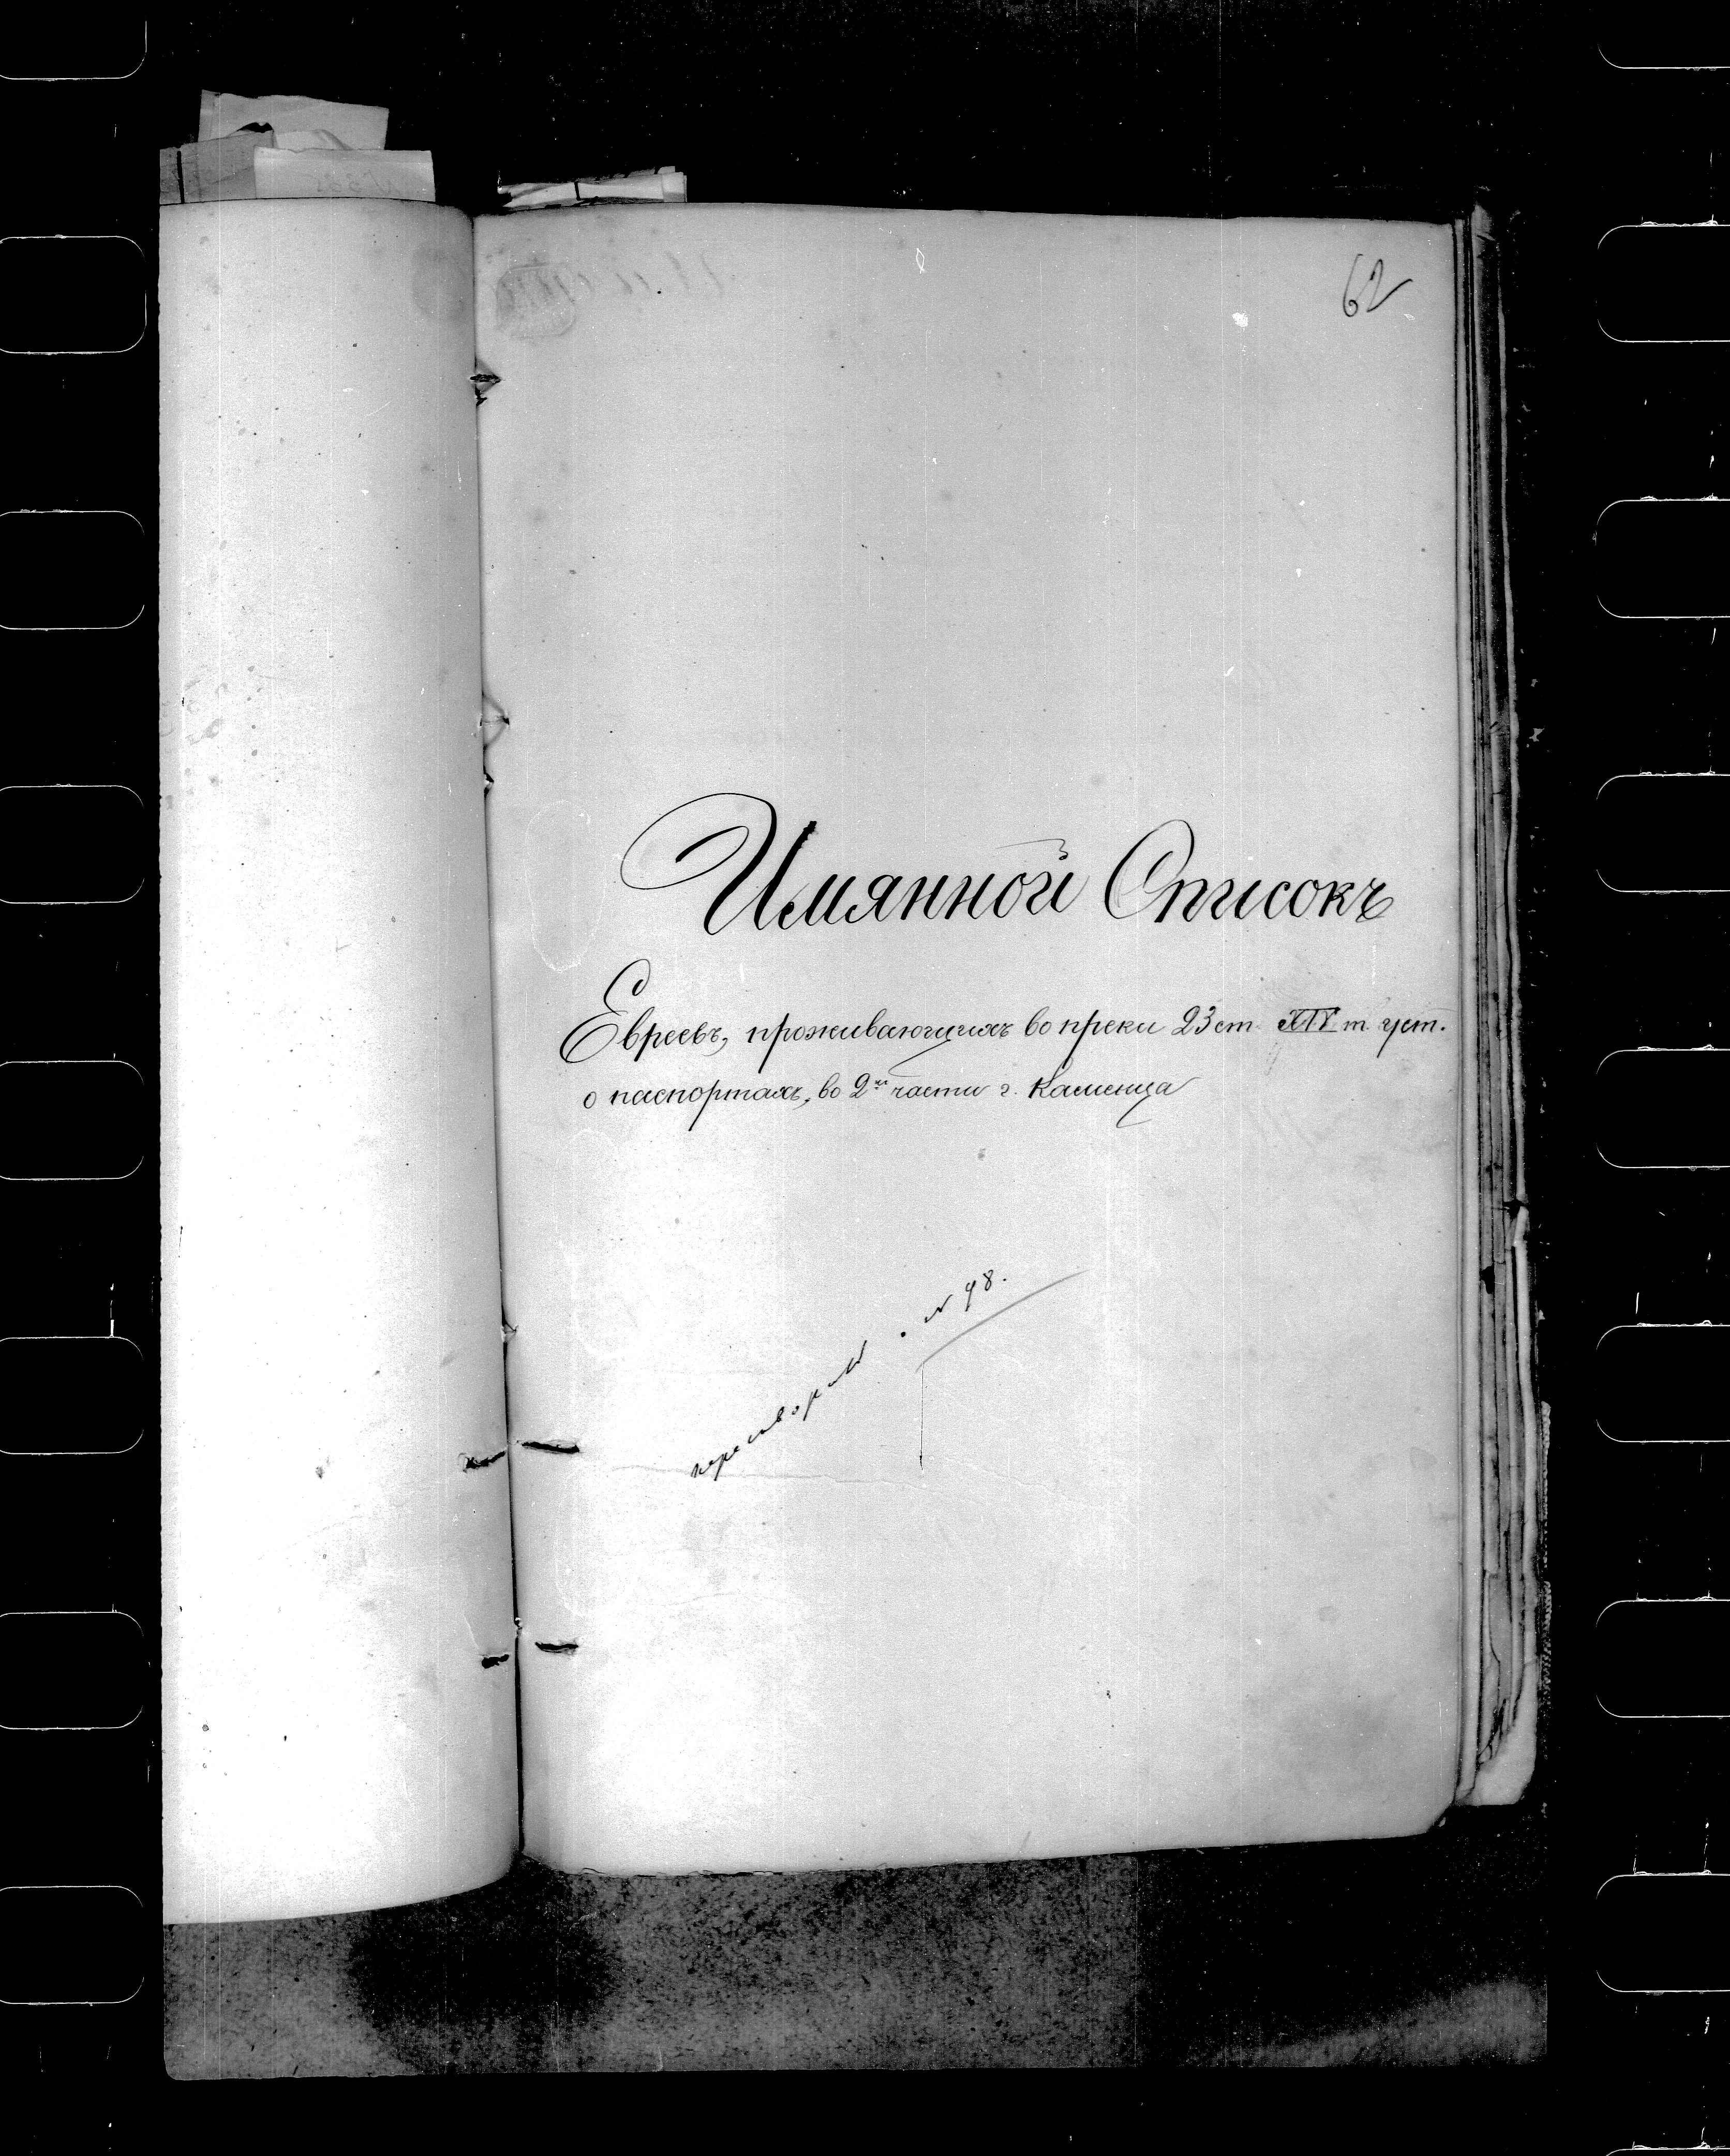 62
Имянной Списокъ
Евреевъ, проживающихъ во преки 23 ст. XIV т. уст.
о паспортахъ, во 2й части г. Каменца
№ 98.